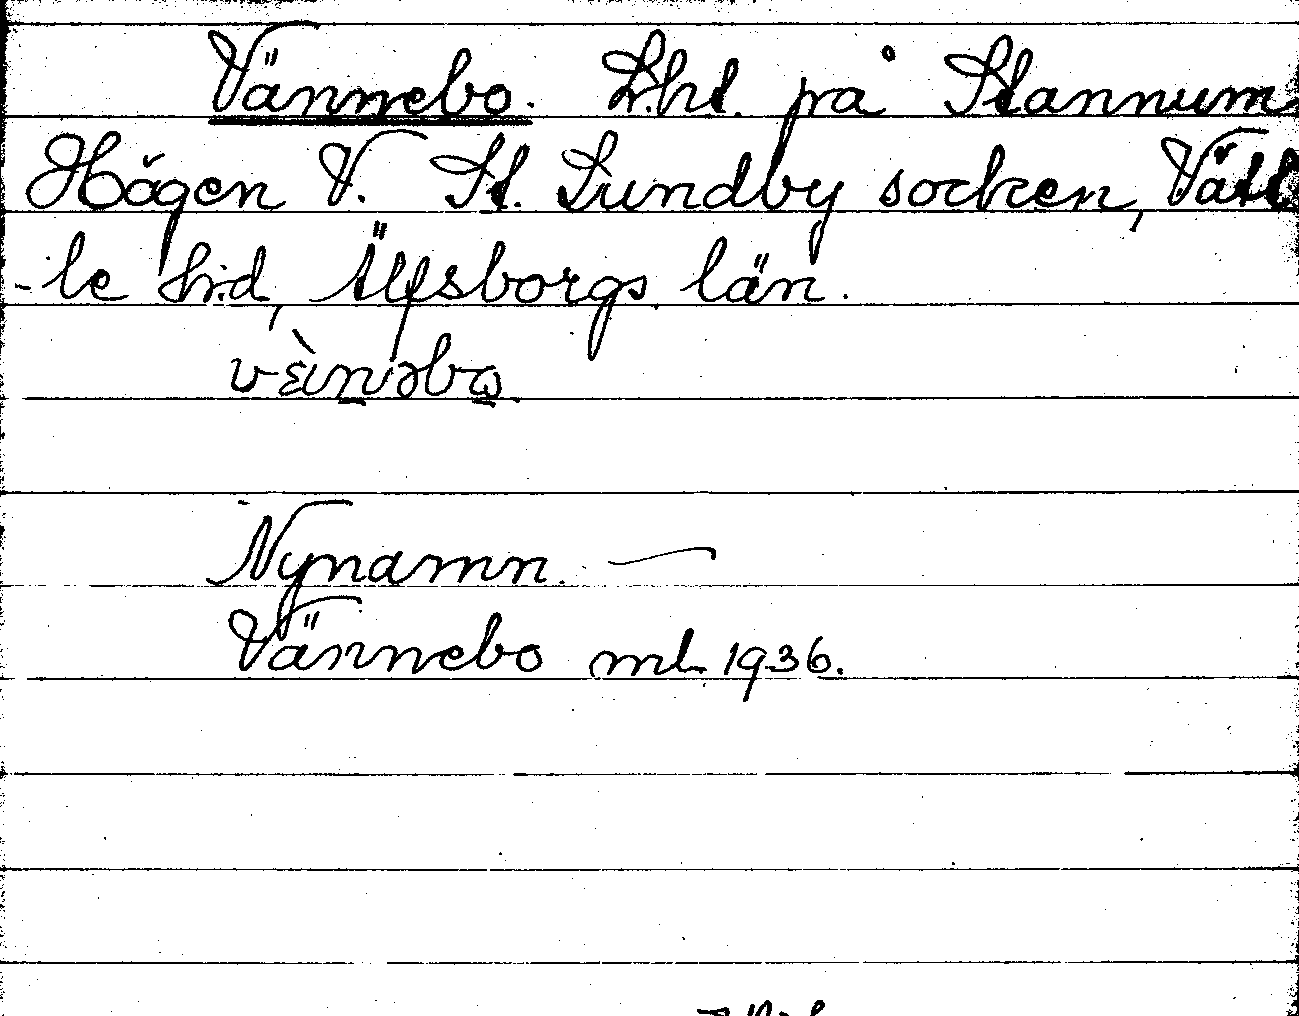 Vännebo. Lht. på Stannum
Högen V. St. Lundby socken, Vätt
-le hd, Älfsborgs län.
Nynamn.
Vännebo ml 1936.